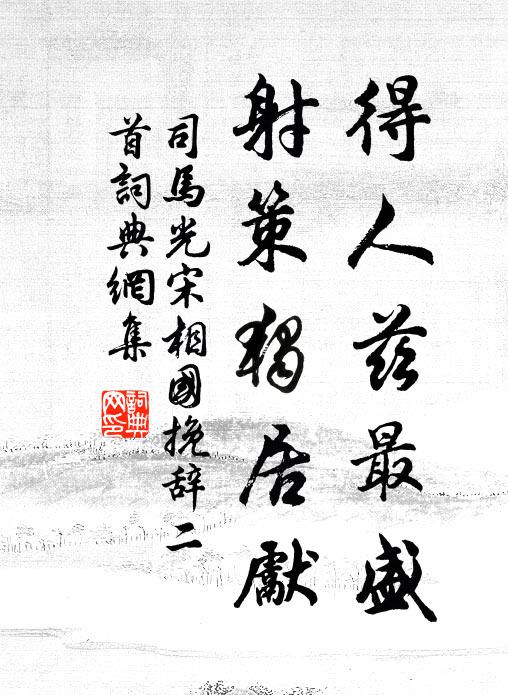 得人兹最盛
射策猲居獻
司馬光宋相國挽辞二
首詞典網集
詞典
网印